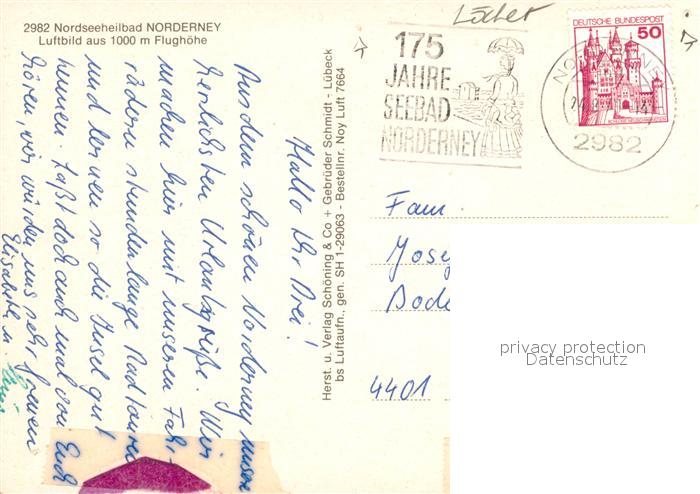 2982 Nordseeheilbad NORDERNEY
Luftbild aus 1000 m Flughöhe
Löcher
175
JAHRE
SEEBAD
NORDERNEY
DEUTSCHE BUNDESPOST
50
2982
Hallo Ihr Drei!
Aus dem schönen Norderney unser
herzlichsten Urlaubsgrüße. Wir
machen hier mit unseren Fahr-
rädern stundenlange Radtouren
und lernen so die Insel gut
kennen. Laßt doch auch mal von Euch
hören, wir würden uns sehr freuen
Elisabeth u
Herst. u. Verlag Schöning & Co + Gebrüder Schmidt - Lübeck
bs Luftaufn., gen. SH 1-29063 - Bestellnr. Noy Luft 7664
Fam.
Josef
Bode
4401
privacy protection
Datenschutz